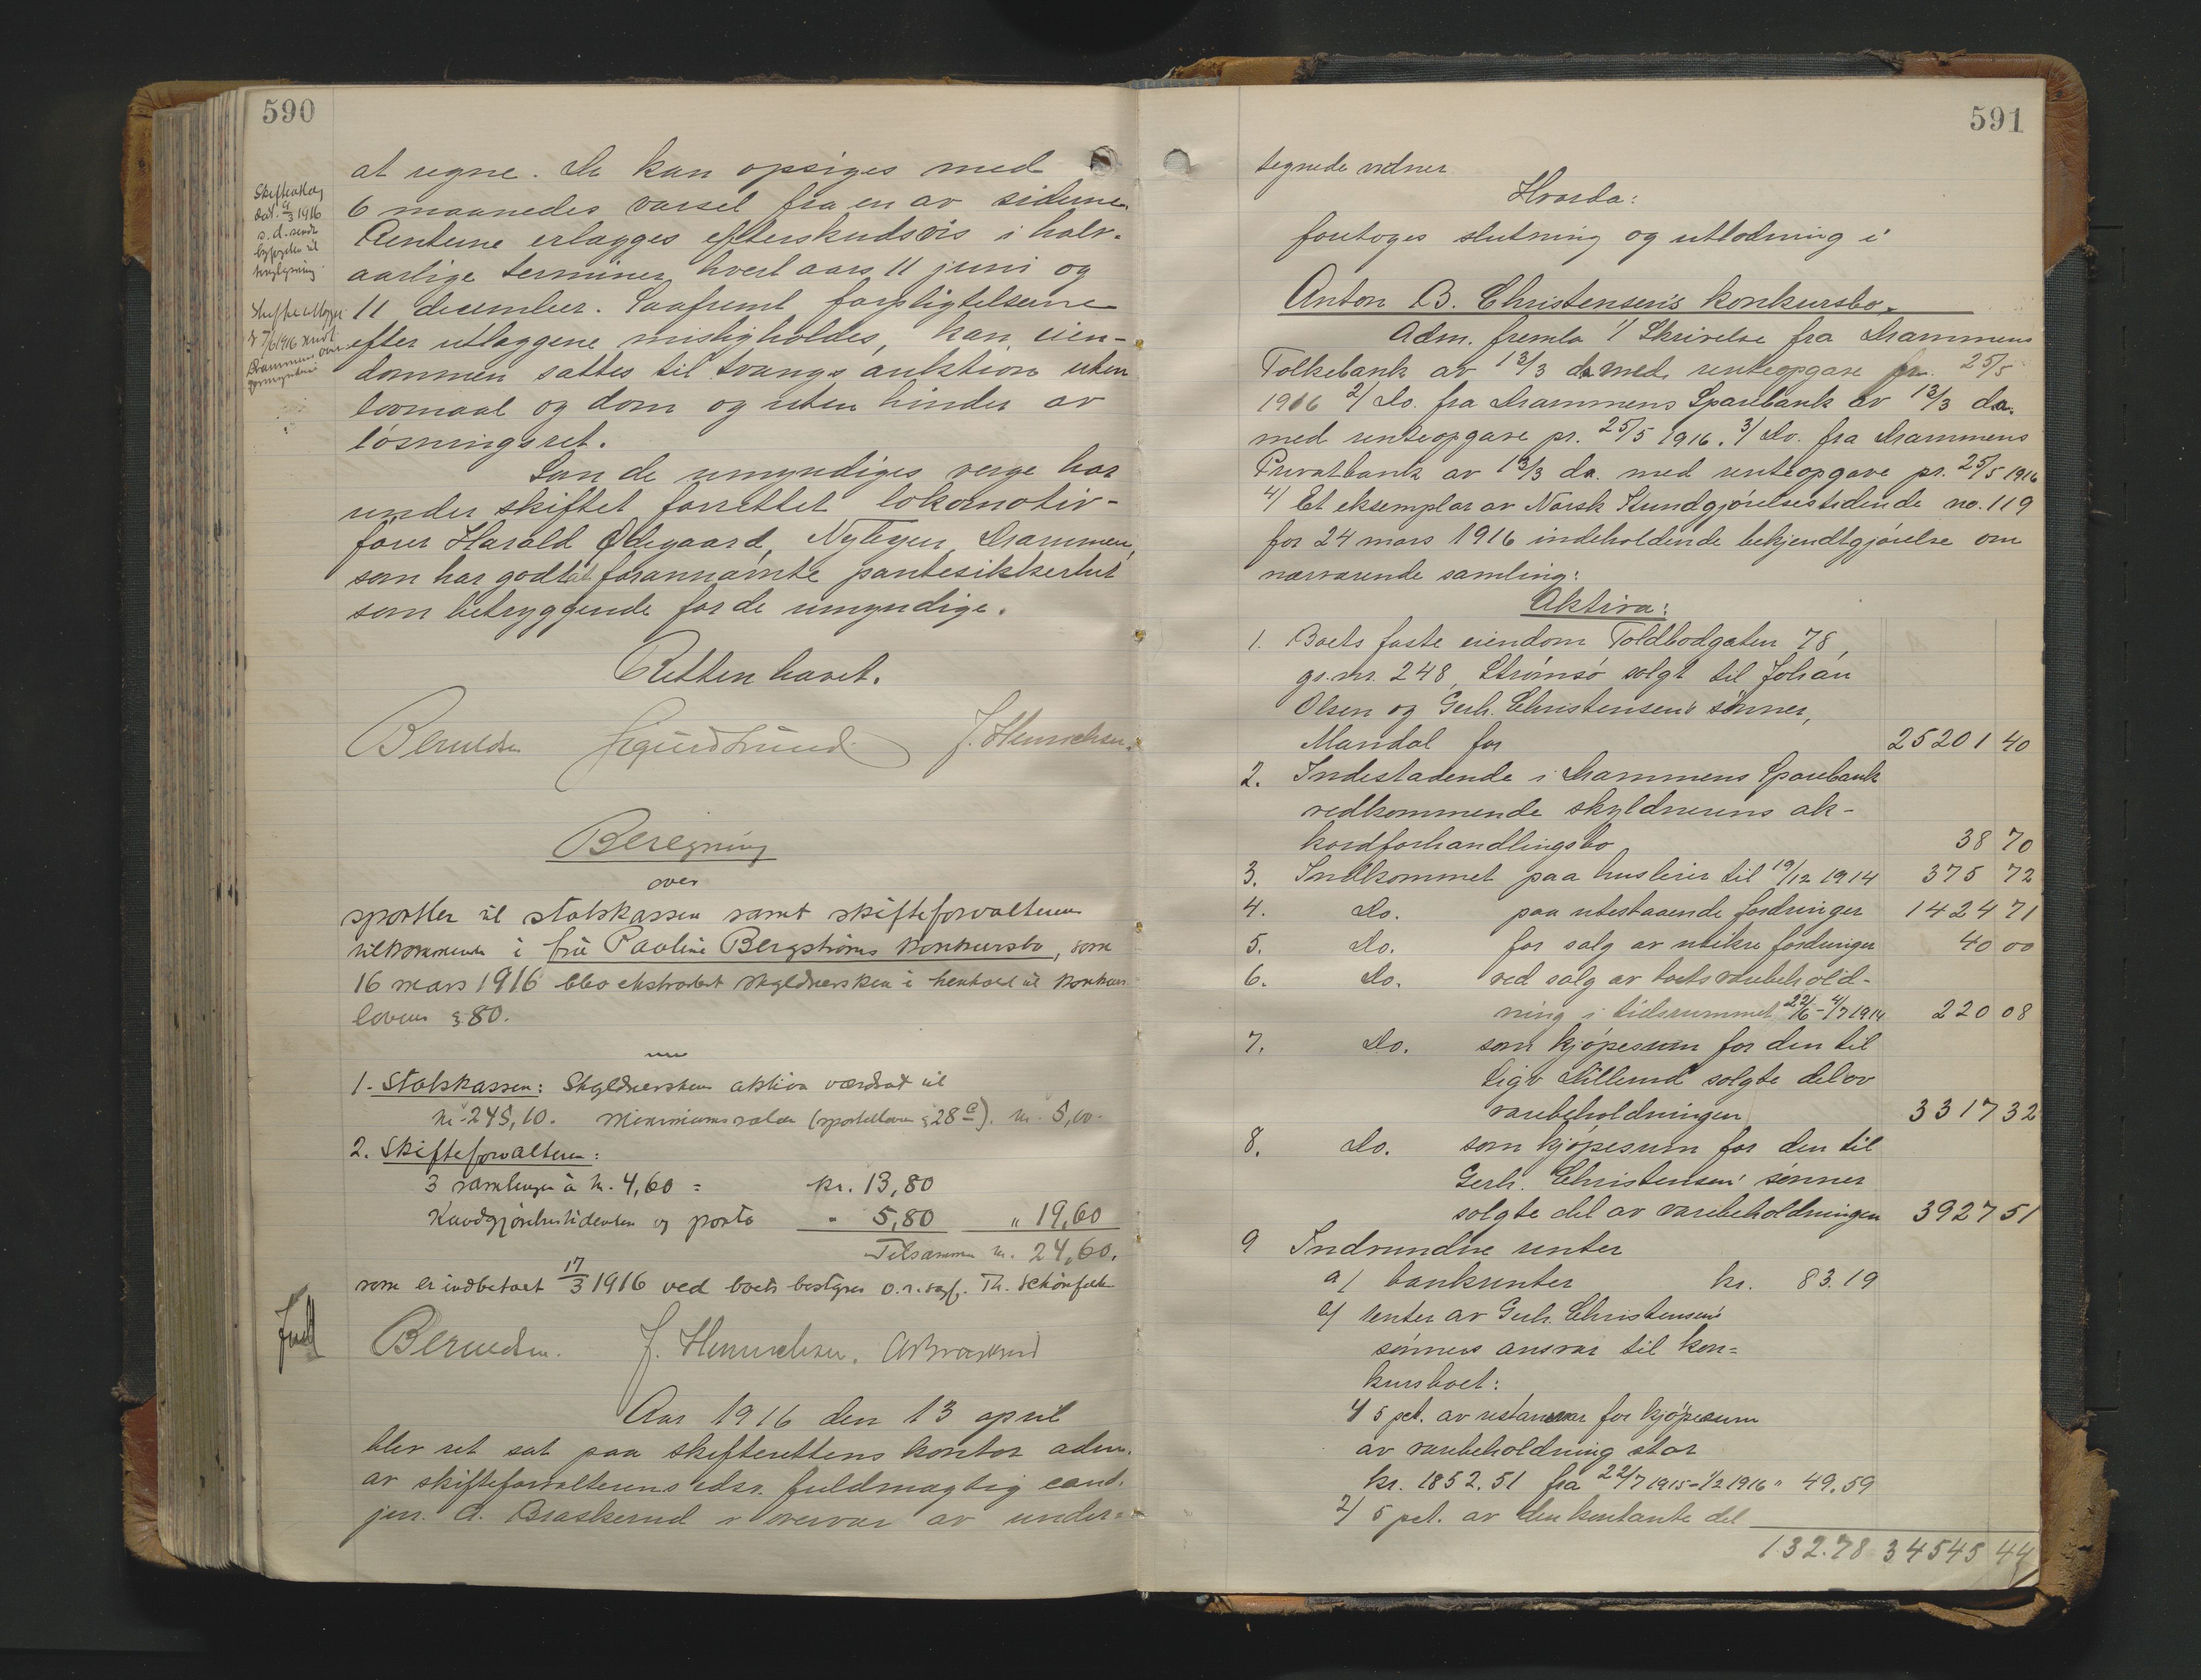 590
Skifteutlæg
dat. 9/3 1916
s. d. sendt
til
tinglysning.
7/6 1916 sendt
Drammens over-
formynderi
at regne. De kan opsiges med
6 maaneders varsel fra en av siderne.
Renterne erlægges efterskudsvis i halv-
aarlige terminer hvert aars 11 juni og
11 december. Saafremt forpligtelserne
efter utlæggene misligholdes, kan eien-
dommen sættes til tvangsauktion uten
lovmaal og dom og uten hinder av
løsningsret.
Som de umyndiges verge har
under skiftet forrettet lokomotiv-
fører Harald Ødegaard, Nytegen, Drammen,
som har godtat forannævnte pantesikkerhet
som betryggende for de umyndige.
Retten hævet.
Berntsen Sigurd Lund J. Henrichsen.
Beregning
over
sportler til statskassen samt skifteforvalteren
tilkommende i fru Pauline Bergstrøms konkursbo, som
16 mars 1916 blev ekstradert skyldnersken i henhold til konkurs
lovens § 80.
1. Statskassen: Skyldnerskens aktiva værdsat til
kr. 245,10. Minimumssatsen (sportelloven § 28 c). kr. 5,00.
2. Skifteforvalteren:
3 samlinger à kr. 4,60 = kr. 13,80
Kundgjørelsestidenden og porto " 5,80 " 19,60
Tilsammen kr. 24,60.
som er indbetalt 17/3 1916 ved boets bestyrer o.r.sagf. Th. Schönfeldt
Berntsen. J. Henrichsen. A Braskerud
Aar 1916 den 13 april
blev ret sat paa skifterettens kontor adm.
av skifteforvalterens edsv. fuldmægtig cand.
jur. A. Braskerud i overvær av under=
591
tegnede vidner
Hvorda:
foretoges slutning og utlodning i
Anton B. Christensen's konkursbo.
Adm. fremla 1/ Skrivelse fra Drammens
Folkebank av 13/3 d.a. med renteopgave pr. 25/5
1916 2/ Do. fra Drammens Sparebank av 13/3 d.a.
med renteopgave pr. 25/5 1916. 3/ Do. fra Drammens
Privatbank av 13/3 d.a. med renteopgave pr. 25/5 1916
4/ Et eksemplar av Norsk Kundgjørelsestidende no. 119
for 24 mars 1916 indeholdende bekjendtgjørelse om
nærværende samling:
Aktiva:
1. Boets faste eiendom Toldbodgaten 78,
gr. nr. 248, Strømsø solgt til Johan
Olsen og Gerh. Christensen's sønner,
Mandal for 25201 40
2. Indestaaende i Drammens Sparebank
vedkommende skyldnerens ak-
kordforhandlingsbo 38 70
3. Indkommet paa husleier til 19/12 1914 375 72
4. Do. paa utestaaende fordringer 1424 71
5. Do. for salg av usikre fordringer 40 00
6. Do. ved salg av boets varebehold-
ning i tidsrummet 22/6 - 4/7 1914 220 08
7. Do. som kjøpesum for den til
Sigv. Lillerud solgte del av
varebeholdningen 3317 32
8. Do. som kjøpesum for den til
Gerh. Christensen' sønner
solgte del av varebeholdningen 3927 51
9 Indvundne renter
a/ bankrenter kr. 83.19
b/ renter av Gerh. Christensens
sønners ansvar til kon=
kursboet:
1/ 5 pct. av restansen for kjøpesum
av varebeholdning stor
kr. 1852.51 fra 22/7 1915 - 1/2 1916 " 49.59
2/ 5 pct. av den kontante del
132.78 34545 44